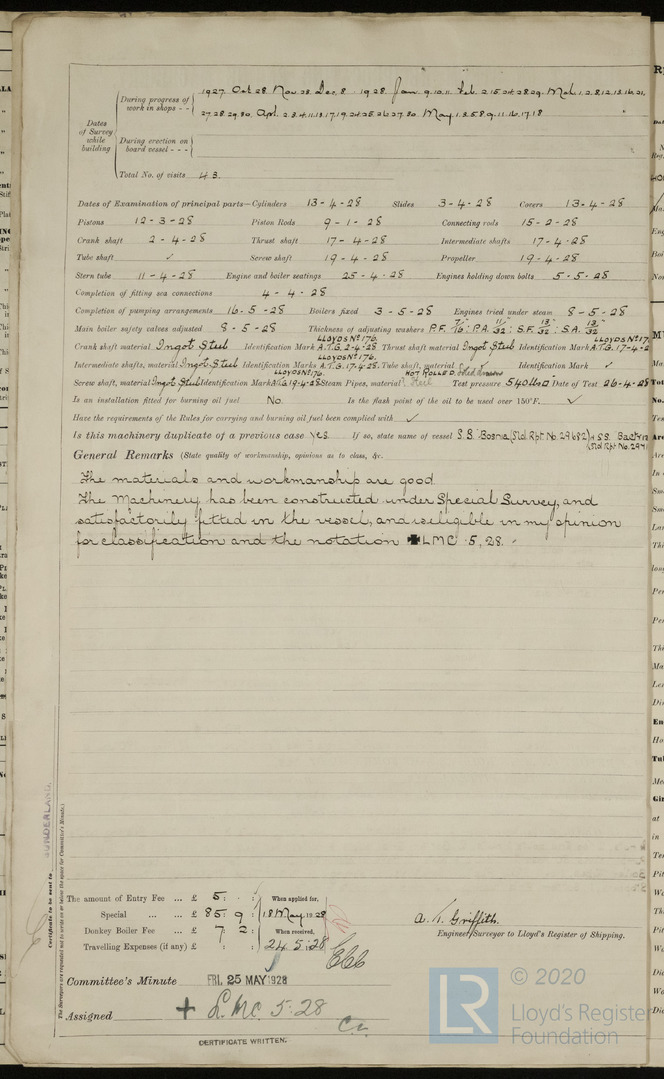 Dates of Survey while building
During progress of work in shops - -
1927. Oct 28. Nov. 28. Dec. 8. 1928. Jan. 9. 10. 11. Feb. 2. 15. 24. 28. 29. Mch. 1. 2. 8. 12. 13. 16. 21.
27. 28. 29. 30. Apl. 2. 3. 4. 11. 13. 17. 19. 24. 25. 26. 27. 30. May 1. 3. 5. 8. 9. 11. 16. 17. 18
During erection on board vessel - - -
Total No. of visits 43.
Dates of Examination of principal parts—Cylinders 13-4-28 Slides 3-4-28 Covers 13-4-28
Pistons 12-3-28 Piston Rods 9-1-28 Connecting rods 15-2-28
Crank shaft 2-4-28 Thrust shaft 17-4-28 Intermediate shafts 17-4-28
Tube shaft ✓ Screw shaft 19-4-28 Propeller 19-4-28
Stern tube 11-4-28 Engine and boiler seatings 25-4-28 Engines holding down bolts 5-5-28
Completion of fitting sea connections 4-4-28
Completion of pumping arrangements 16-5-28 Boilers fixed 3-5-28 Engines tried under steam 8-5-28
Main boiler safety valves adjusted 8-5-28 Thickness of adjusting washers P.F. 7/16" : P.A. 11/32" : S.F. 13/32" : S.A. 13/32"
Crank shaft material Ingot Steel Identification Mark LLOYDS No 176. A.T.G. 2-4-28 Thrust shaft material Ingot Steel Identification Mark LLOYDS No 17 A.T.G. 17-4-2
Intermediate shafts, material Ingot Steel Identification Marks LLOYDS No 176. A.T.G. 17.4.28. Tube shaft, material ✓ Identification Mark ✓
Screw shaft, material Ingot Steel Identification Mark LLOYDS No 176. A.T.G. 19-4-28 Steam Pipes, material HOT ROLLED Steel Test pressure 540 lbs □ Date of Test 26-4-28
Is an installation fitted for burning oil fuel No. Is the flash point of the oil to be used over 150°F. ✓
Have the requirements of the Rules for carrying and burning oil fuel been complied with ✓
Is this machinery duplicate of a previous case Yes. If so, state name of vessel S.S. "Bosnia" (Sld. Rpt. No. 29682) & S.S.
General Remarks (State quality of workmanship, opinions as to class, &c.
The materials and workmanship are good
The Machinery has been constructed under Special Survey, and
satisfactorily fitted in the vessel, and is eligible in my opinion
for classification and the notation ✠ LMC 5,28.
SUNDERLAND.
Certificate to be sent to
The Surveyors are requested not to write on or below the space for Committee's Minute.
The amount of Entry Fee ... £ 5 : : When applied for,
Special ... ... £ 85 : 9 : 18 May 1928
Donkey Boiler Fee ... £ 7 : 2 : When received,
Travelling Expenses (if any) £ : : 24.5.28
A. T. Griffith.
Engineer Surveyor to Lloyd's Register of Shipping.
Committee's Minute FRI. 25 MAY 1928
Assigned + L.M.C. 5.28
CERTIFICATE WRITTEN.
LR
© 2020
Lloyd's Register
Foundation